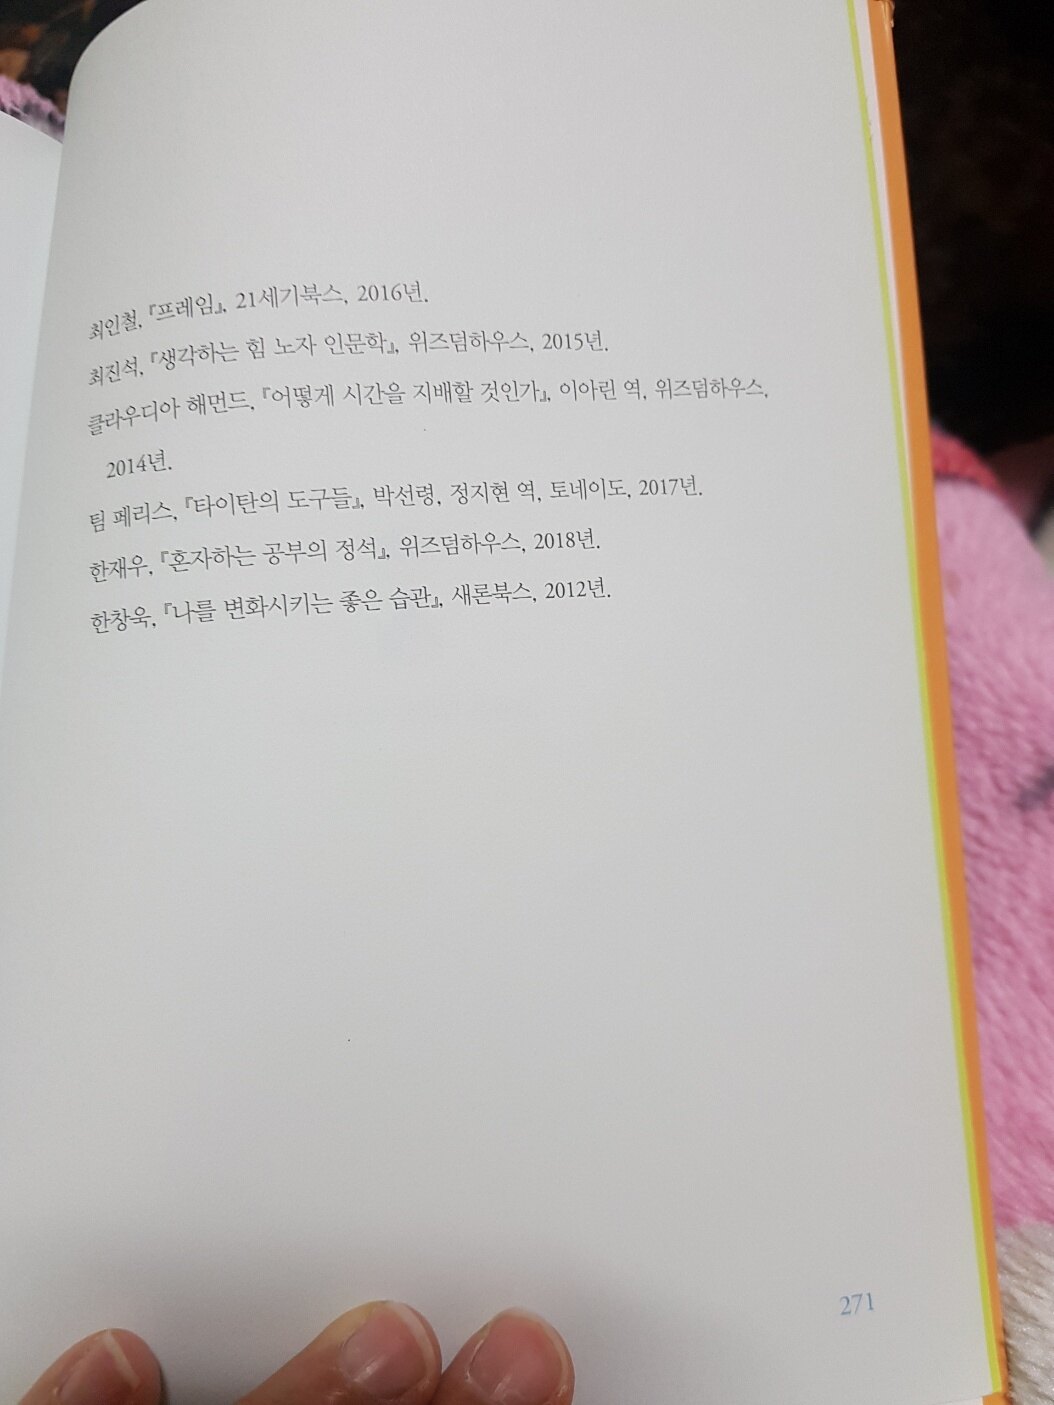 최인철, 『프레임』, 21세기북스, 2016년.
최진석, 『생각하는 힘 노자 인문학』, 위즈덤하우스, 2015년.
클라우디아 해먼드, 『어떻게 시간을 지배할 것인가』, 이아린 역, 위즈덤하우스,
2014년.
팀 페리스, 『타이탄의 도구들』, 박선령, 정지현 역, 토네이도, 2017년.
한재우, 『혼자하는 공부의 정석』, 위즈덤하우스, 2018년.
한창욱, 『나를 변화시키는 좋은 습관』, 새론북스, 2012년.
271